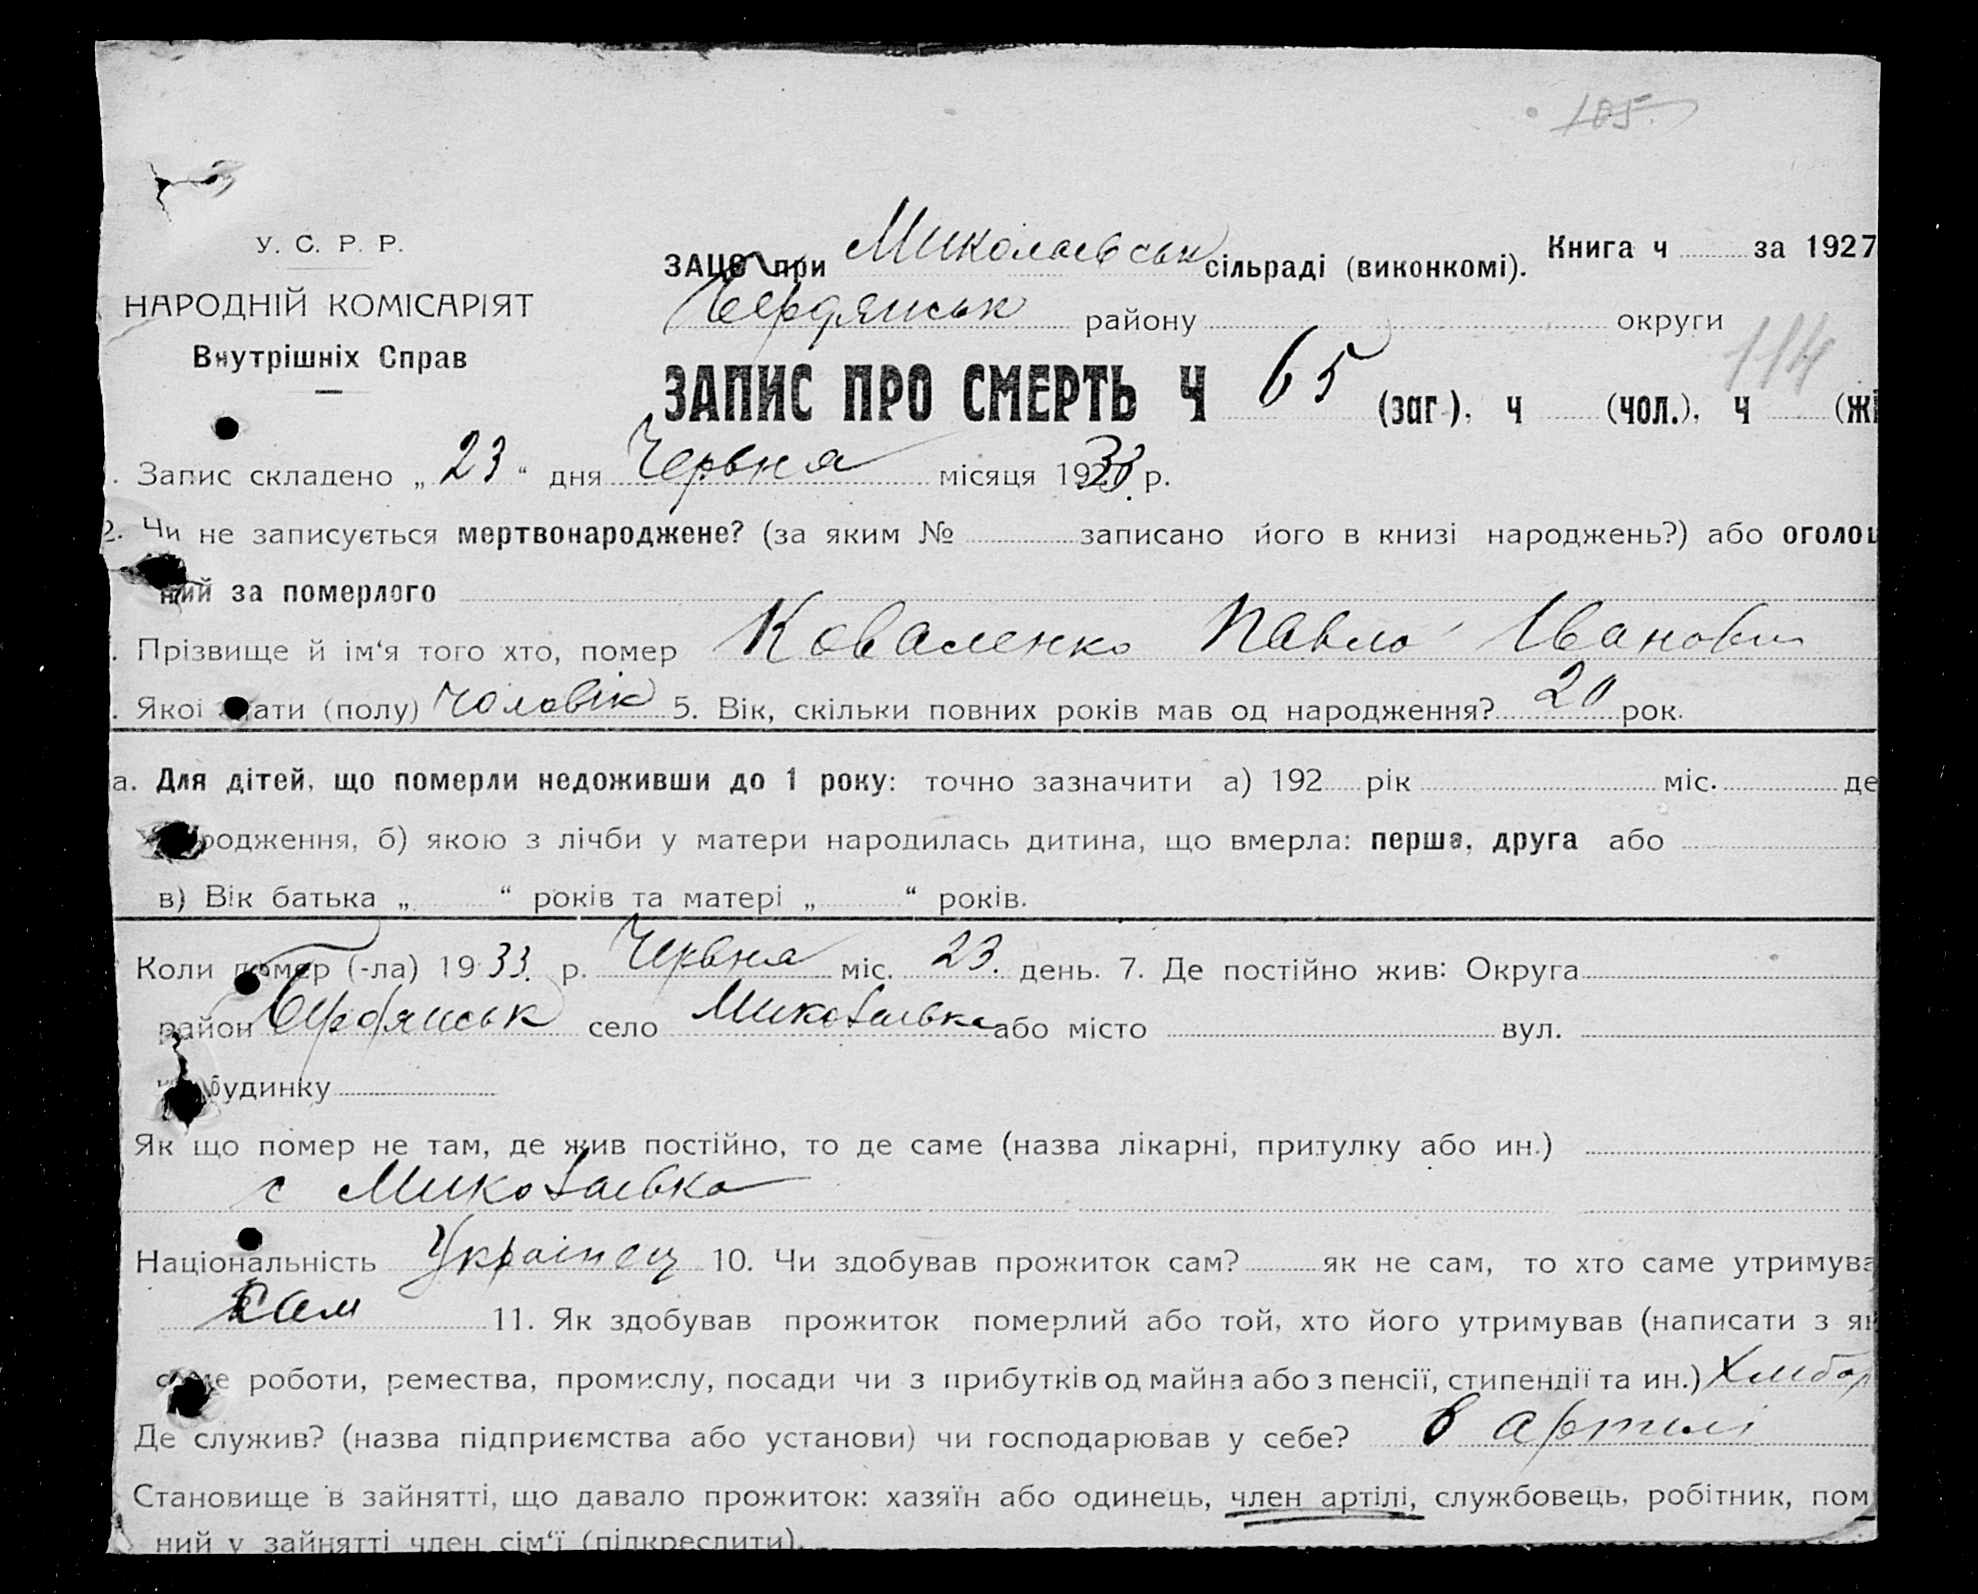 105.
У. С. Р. Р.
НАРОДНІЙ КОМІСАРІЯТ
Внутрішніх Справ
ЗАЦС при Миколаєвськ сільраді (виконкомі). Книга ч за 1927
Бердянськ району округи
114
ЗАПИС ПРО СМЕРТЬ Ч 65 (заг.), ч (чол.), ч (жі
. Запис складено „ 23 “ дня Червня місяця 1933 р.
2. Чи не записується мертвонароджене? (за яким № записано його в книзі народжень?) або оголош
ний за померлого
. Прізвище й ім‘я того хто, помер Коваленко Павло Іванович
. Якої стати (полу) чоловік 5. Вік, скільки повних років мав од народження? 20 рок.
а. Для дітей, що померли недоживши до 1 року: точно зазначити а) 192 рік міс. де
родження, б) якою з лічби у матери народилась дитина, що вмерла: перша, друга або
в) Вік батька „ “ років та матері „ “ років.
Коли помер (-ла) 1933. р. Червня міс. 23. день. 7. Де постійно жив: Округа
район Бердянськ село Миколаевка або місто вул.
будинку
Як що помер не там, де жив постійно, то де саме (назва лікарні, притулку або ин.)
с Миколаевка
Національність Українец 10. Чи здобував прожиток сам? як не сам, то хто саме утримува
Сам 11. Як здобував прожиток померлий або той, хто його утримував (написати з як
саме роботи, ремества, промислу, посади чи з прибутків од майна або з пенсії, стипендії та ин.) Хлибор
Де служив? (назва підприємства або установи) чи господарював у себе? в артилі
Становище в зайнятті, що давало прожиток: хазяїн або одинець, член артілі, службовець, робітник, пом
ний у зайнятті член сім‘ї (підкреслити).